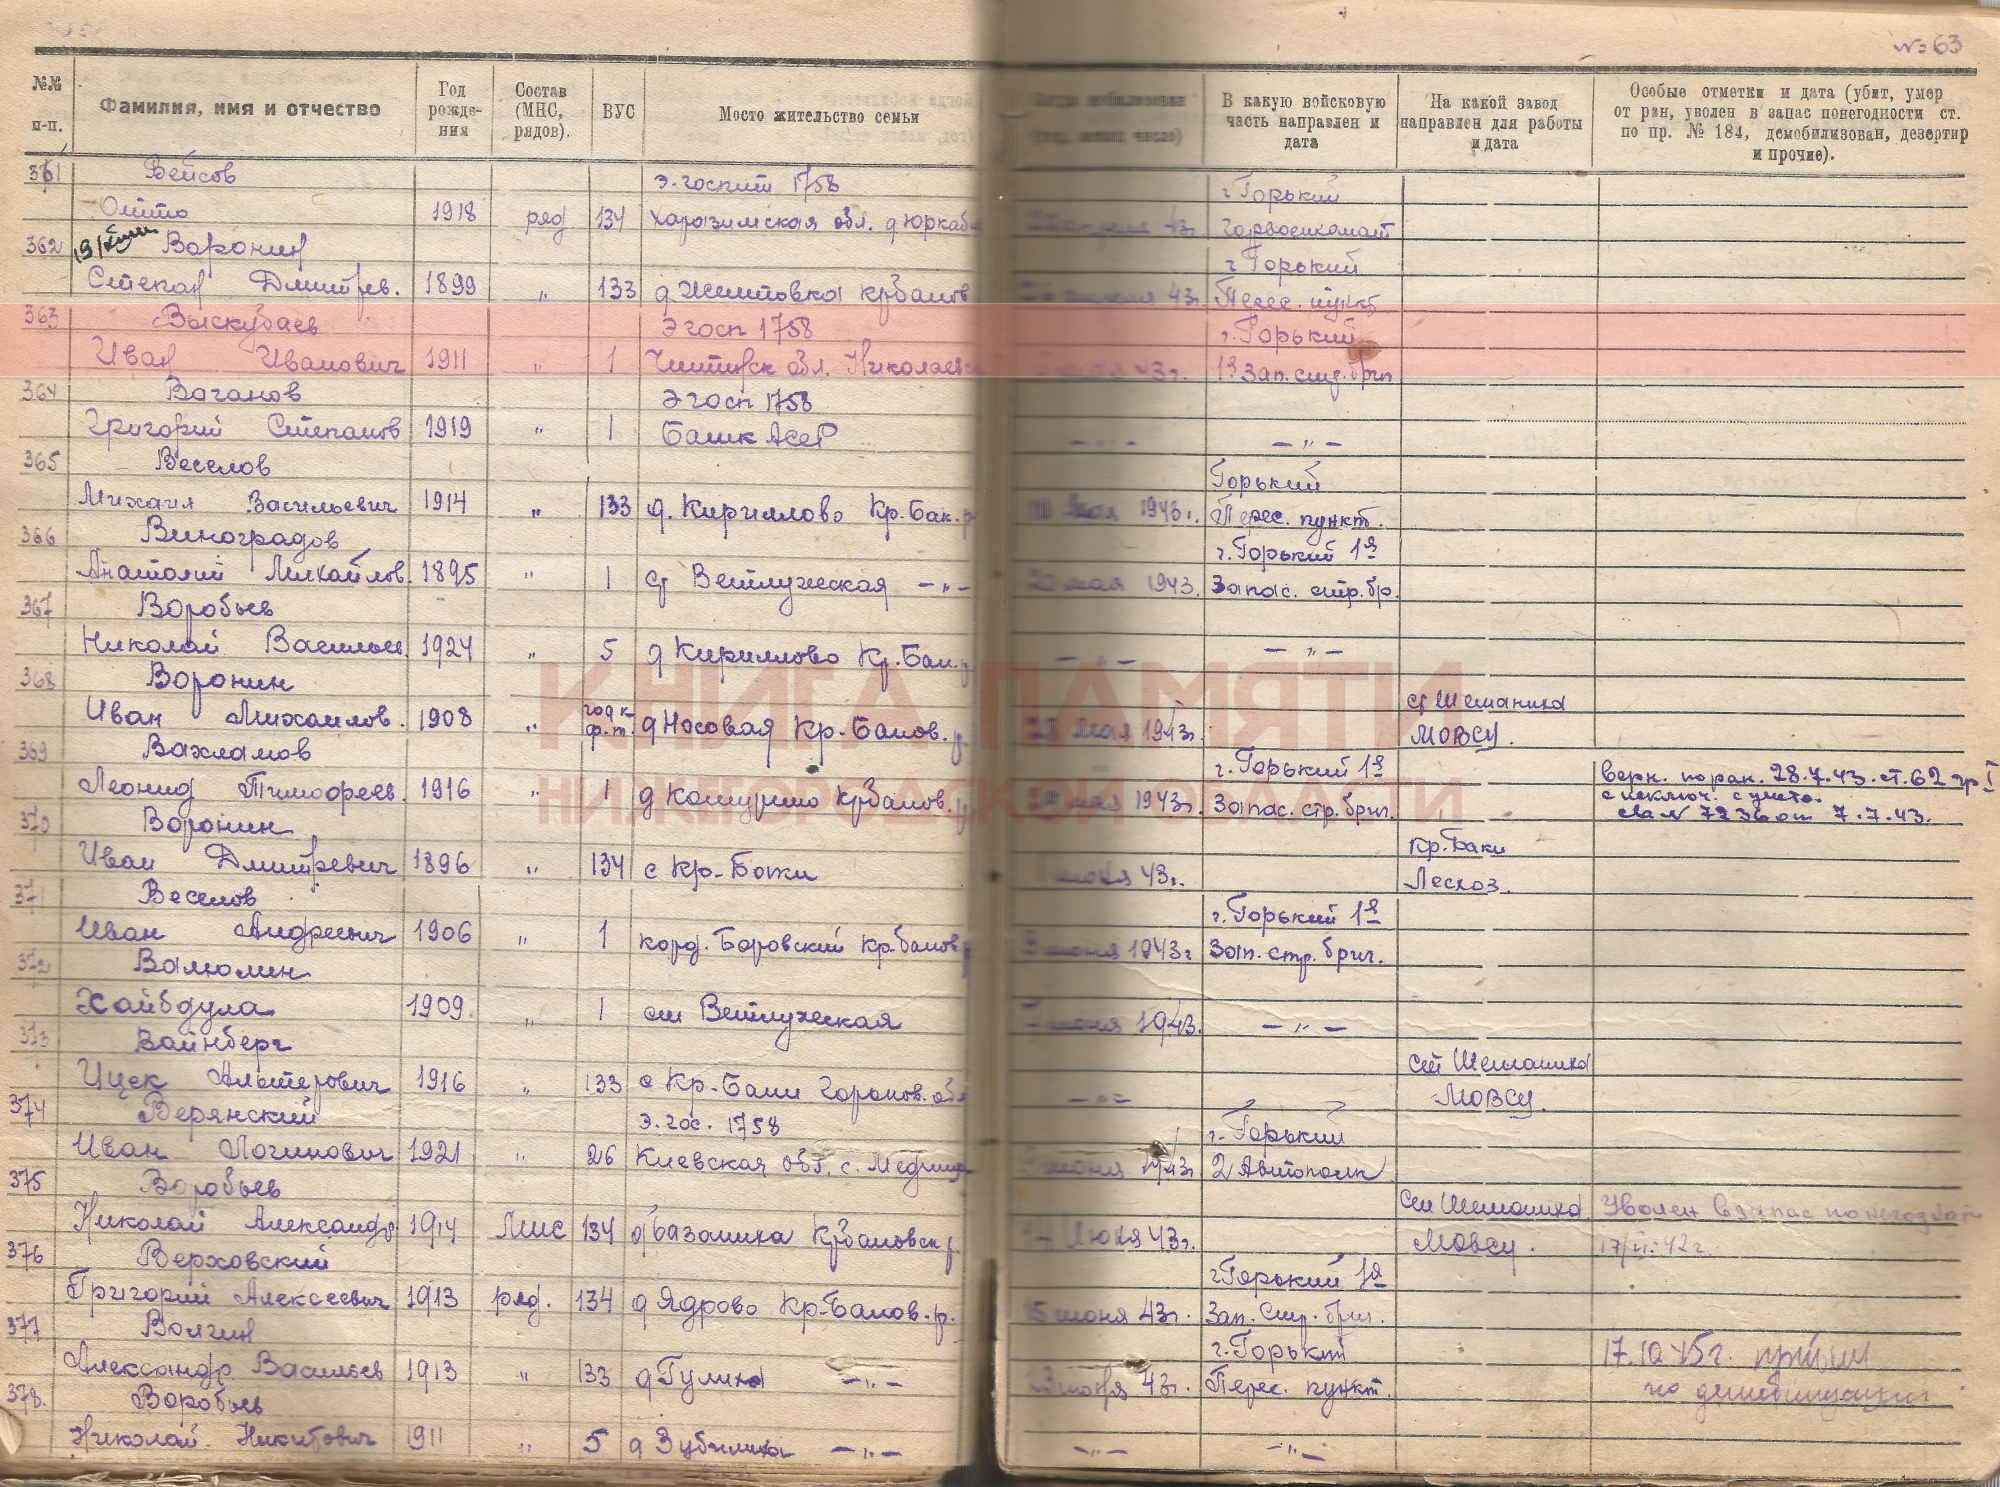 № 63
№№ п-п.
Фамилия, имя и отчество
Год рожде-ния
Состав (МНС, рядов).
ВУС
Мосто жительство семьи
В какую войсковую часть направлен и дата
На какой завод направлен для работы и дата
Особые отметки и дата (убит, умер от ран, уволен в запас понегодности ст. по пр. № 184, демобилизован, дезертир и прочие).
361 Вейсов э. госпит 1758 г. Горький
1918 ряд 134 обл. 43г. Горвоенкомат
362 Воронин г Горький
Степан Дмитрев. 1899 " 133 д 43г. Перес. пункт
363 Выскубаев Э госп 1758 г. Горький
Иван Иванович 1911 " 1 Читинск обл. 43г. 1я Зап. стр. бриг
364 Ваганов Э госп 1758
Григорий Степанов 1919 " 1 Башк АССР — " — — " —
365 Веселов Горький
Михаил Васильевич 1914 " 133 д. Кириллово Кр. Бак. р 10 мая 1943г. Перес. пункт.
366 Виноградов г. Горький 1я
Анатолий Михайлов. 1895 " 1 ст Ветлужская — " — 20 мая 1943. Запас. стр. бр.
367 Воробьев
Николай Васильев. 1924 " 5 д Кириллово Кр. Бак. р — " — — " —
368 Воронин ст Шеманиха
Иван Михайлов. 1908 " годн. ф.т. д Носовая Кр. Баков. р. мая 1943г. МОВСУ.
369 Вахламов г. Горький 1я верн. по ран. 28.7.43. ст. 62 гр I
Леонид Тимофеев. 1916 " 1 д Кр Баков. р мая 1943г. Запас. стр. бриг. с исключ. с учета.
7236 от 7.7.43.
370 Воронин Кр. Баки
Иван Дмитревич 1896 " 134 с Кр. Баки 43г. Лесхоз.
371 Веселов г. Горький 1я
Иван Андреевич 1906 " 1 корд. Боровский Кр. Баков р июня 1943г Зап. стр. бриг.
372 Валюлин
Хайбдула 1909 " 1 ст Ветлужская июня 1943. — " —
373 Вайнберг ст Шеманиха
Ицек Альтерович 1916 " 133 с Кр. Баки Горьков. обл — " — МОВСУ.
374 Верянский э. гос. 1758 г. Горький
Иван Логинович 1921 " 26 Киевская обл. с. июня 1943г 2 Автополк
375 Воробьев ст Шеманиха Уволен в запас по негодност
Николай Александр 1914 МНС 134 д Базаниха Кр Баковск р. июня 43г. МОВСУ. 17/VI. 42г
376 Верховский г Горький 1я
Григорий Алексеевич 1913 ряд. 134 д Ядрово Кр. Баков. р. 15 июня 43г. Зап. стр. бриг.
377 Волгин г. Горький 17.10.45г. прибыл
Александр Васильев 1913 " 133 д Гулиха — " — 23 июня 43г. Перес. пункт. по демобилизации
378. Воробьев
Николай Никитович 1911 " 5 д Зубилиха — " — — " — — " —
КНИГА ПАМЯТИ
НИЖЕГОРОДСКОЙ ОБЛАСТИ